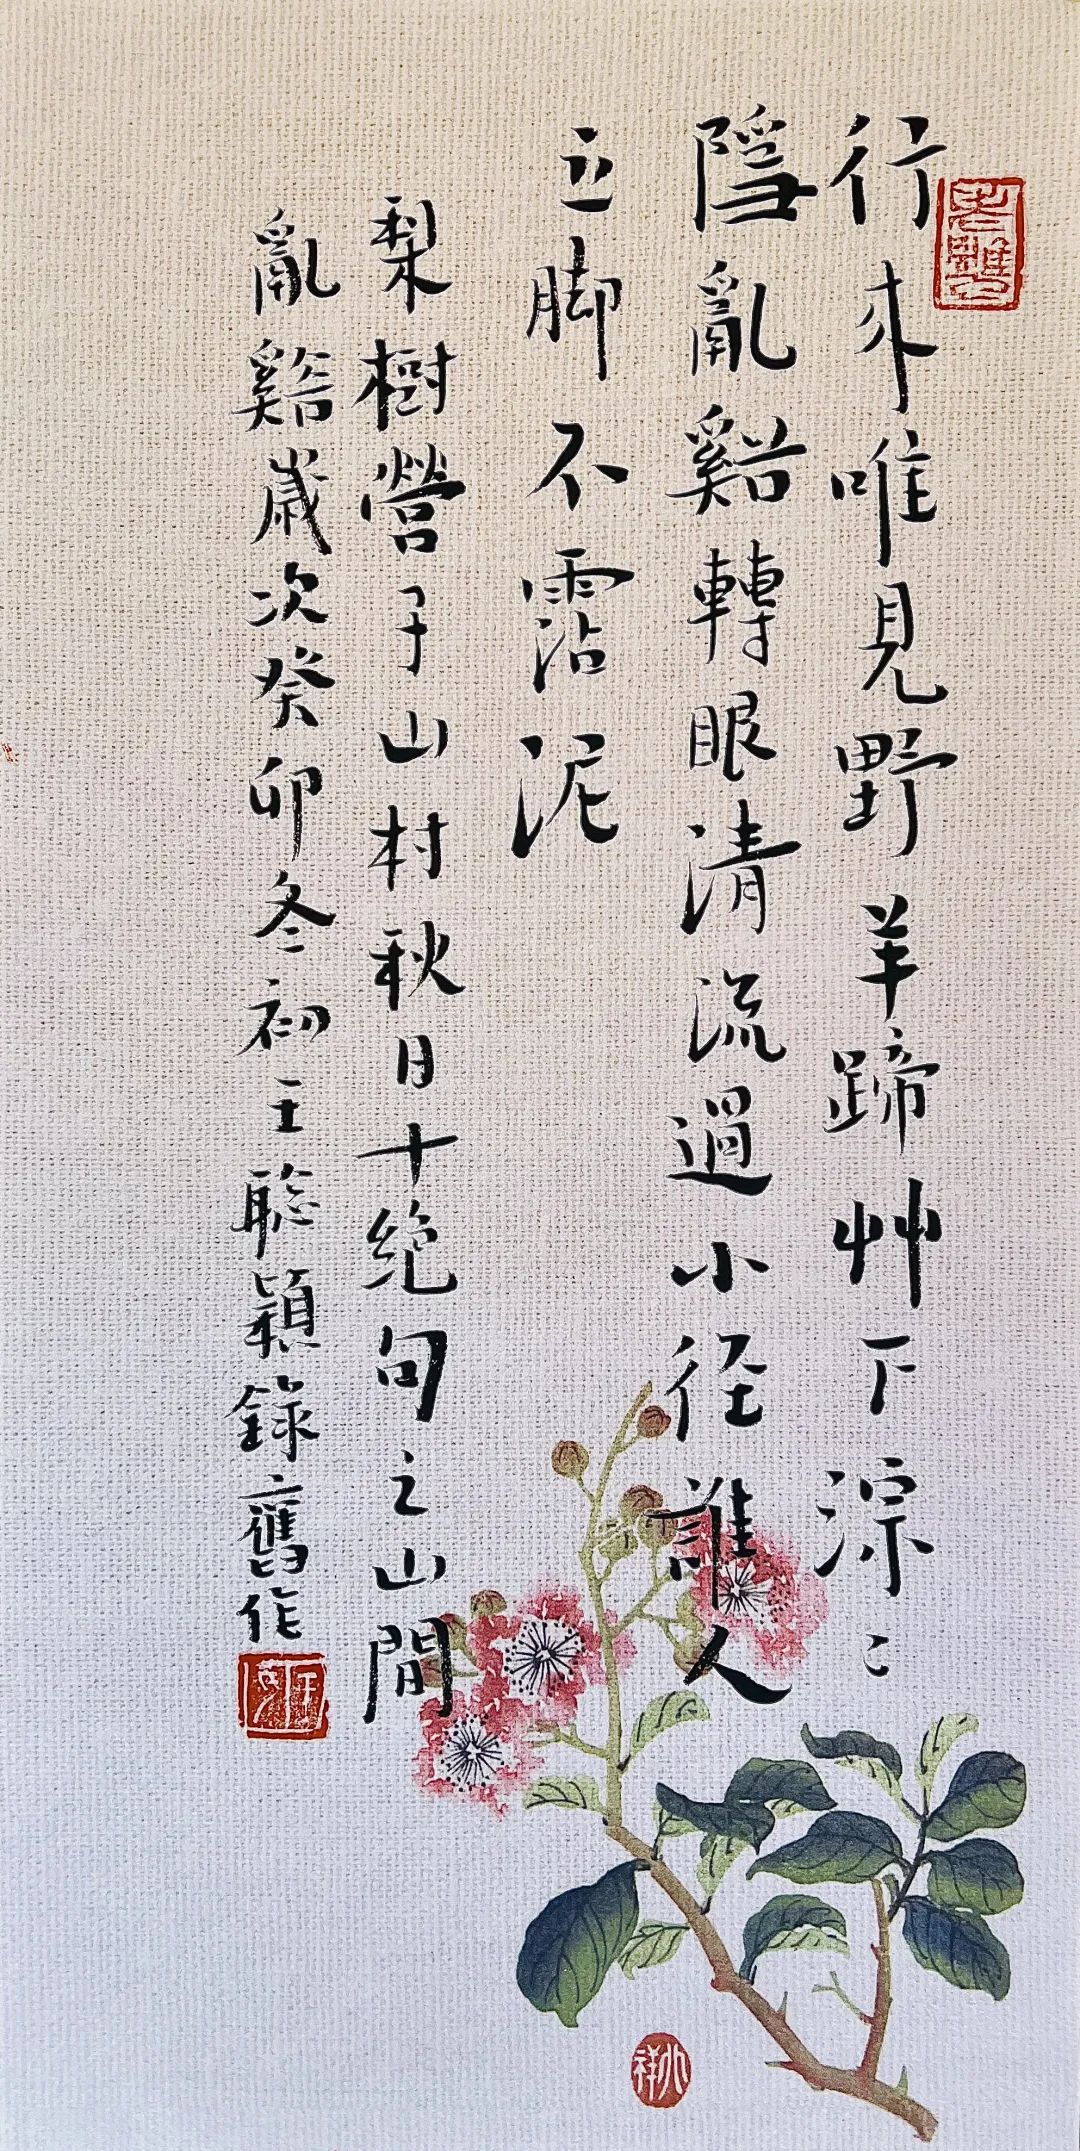 行来唯見野羊蹄艸下淙〻
隱亂谿轉眼清流過小徑誰人
立脚不霑泥
梨樹營子山村秋日十絶句之山間
亂谿歲次癸卯冬初王聡穎錄舊作